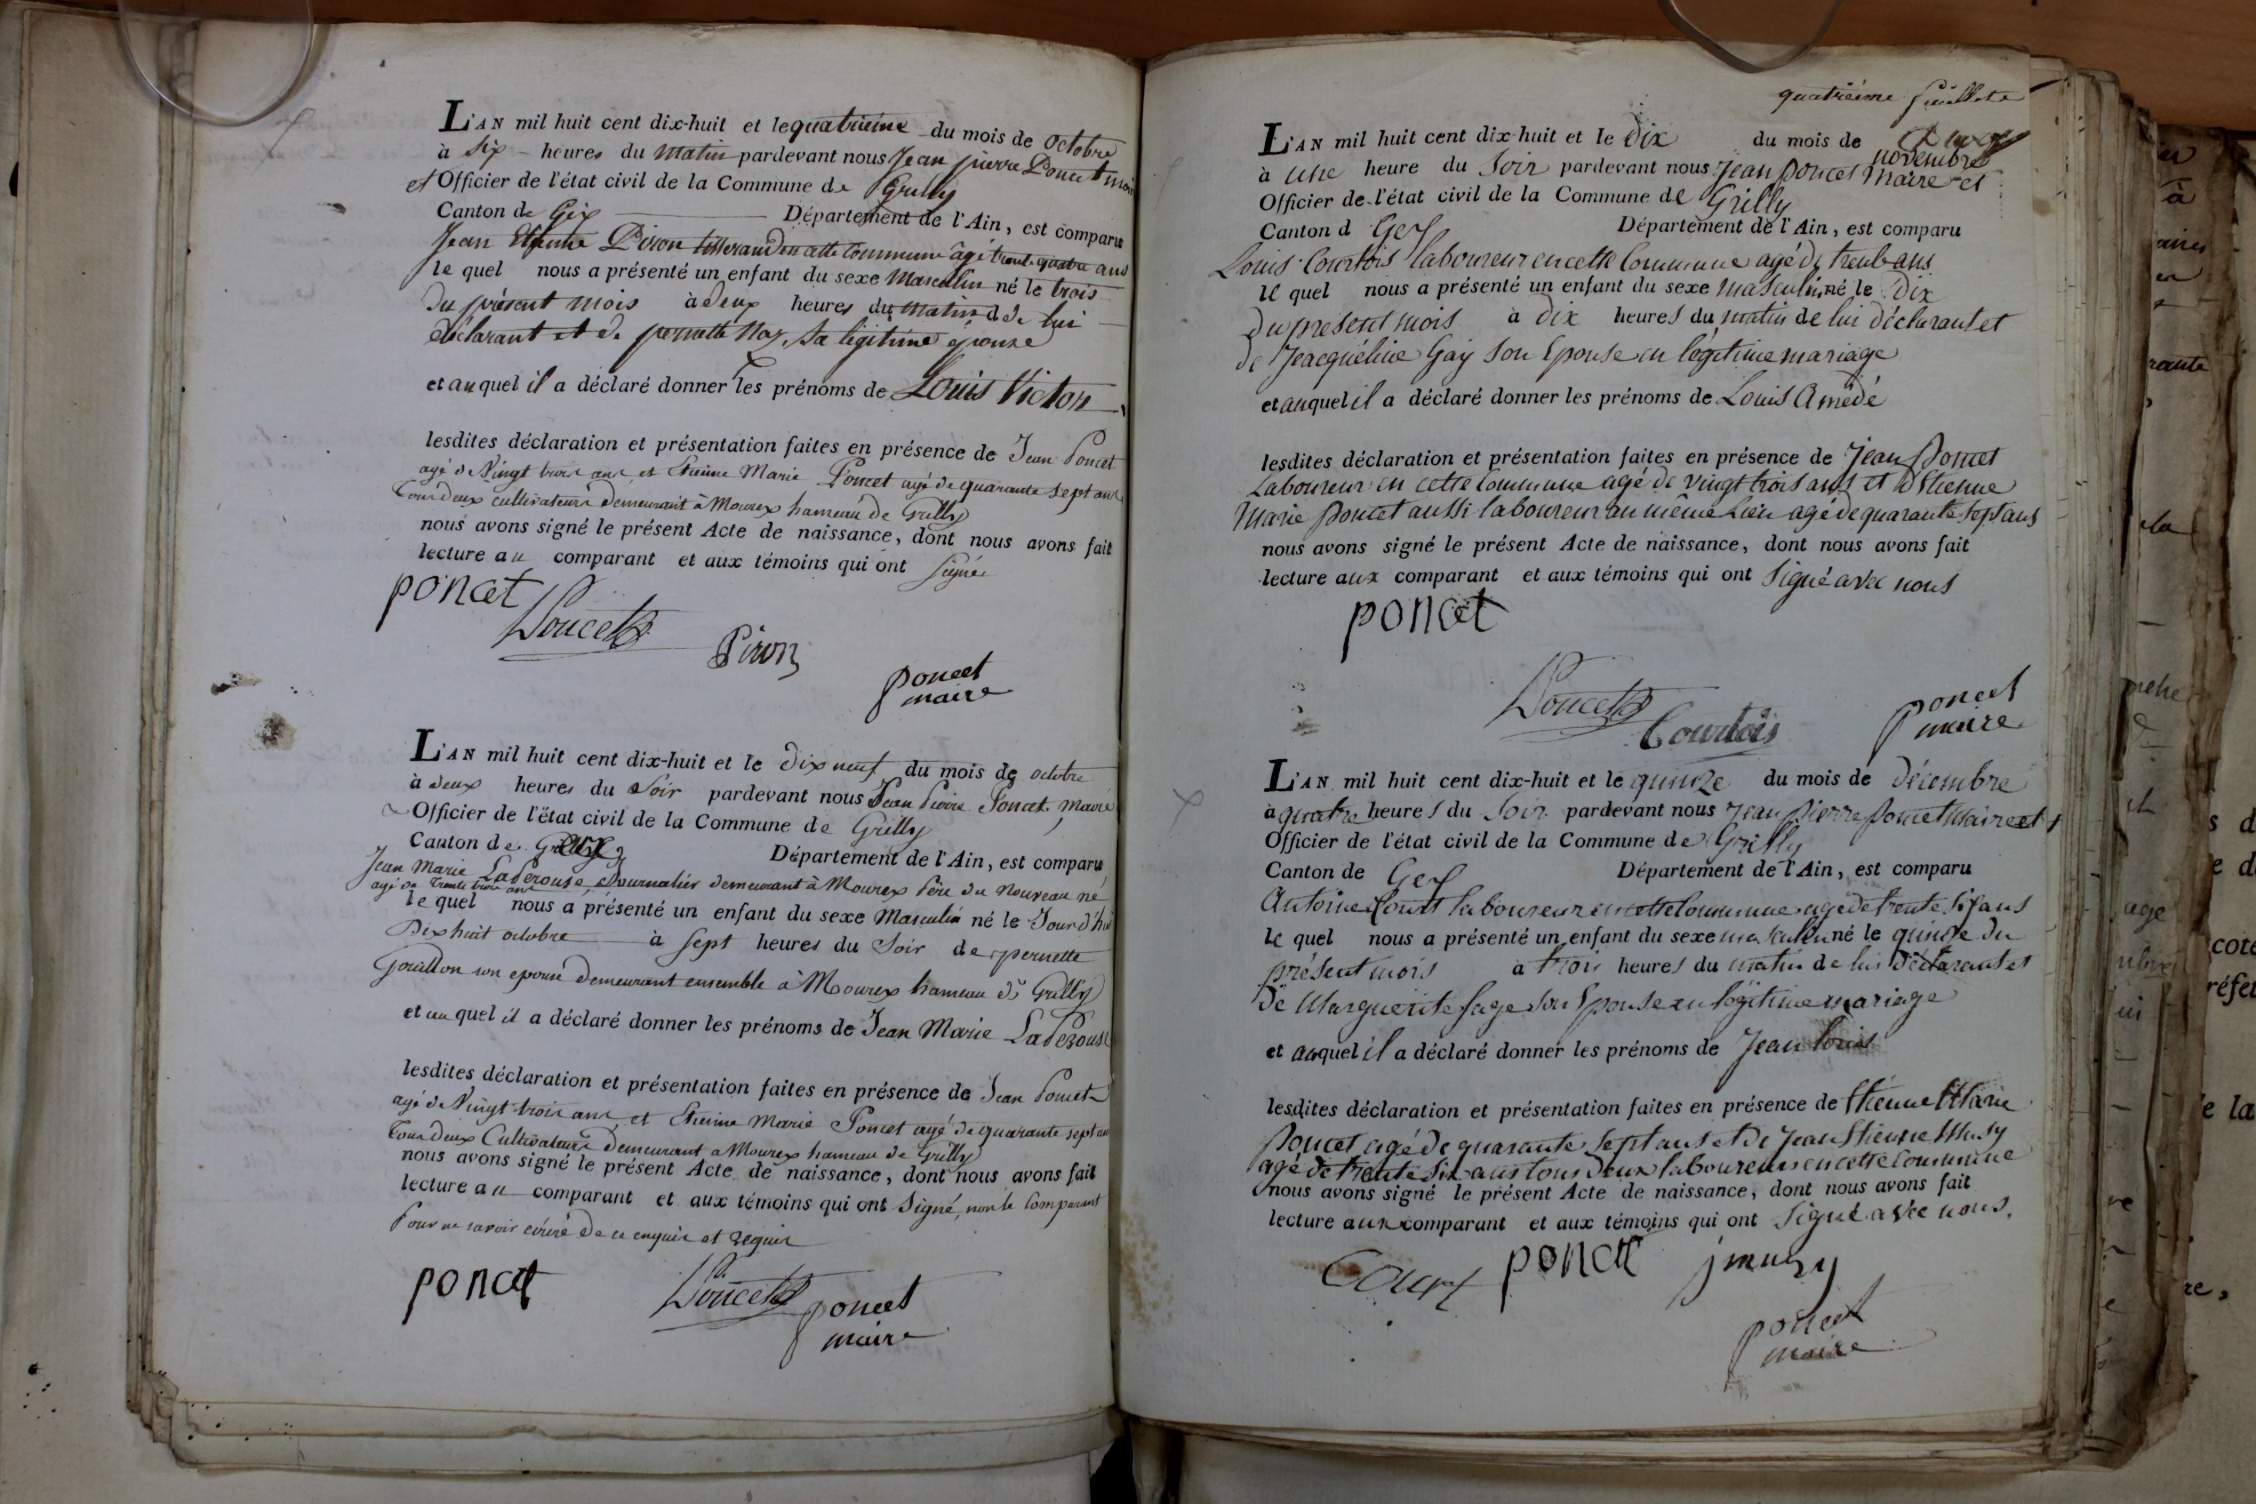 L'AN mil huit cent dix-huit et le quatrieme du mois de octobre
à six heures du matin pardevant nous Jean pierre Poncet maire
et Officier de l'état civil de la Commune de Grilly
Canton de Gex Département de l'Ain, est comparu
Jean Etienne Piron tisserand en cette Commune âgé trente quatre ans
le quel nous a présenté un enfant du sexe Masculin né le trois
du présent mois à deux heures du matin de lui
déclarant et de pernette Noz sa légitime épouze
et auquel il a déclaré donner les prénoms de Louis Victor
lesdites déclaration et présentation faites en présence de Jean Poncet
agé de Vingt trois ans et Etienne Marie Poncet agé de quarante sept ans
tous deux cultivateurs demeurant à Mourex hameau de Grilly
nous avons signé le présent Acte de naissance, dont nous avons fait
lecture au comparant et aux témoins qui ont signé
poncet
Poncet
Piron
poncet
maire
L'AN mil huit cent dix-huit et le dix neuf du mois de octobre
à deux heures du Soir pardevant nous Jean Pierre Poncet, Maire
Officier de l'état civil de la Commune de Grilly
Canton de Gex Département de l'Ain, est comparu
Jean Marie LaPérouse, Journalier demeurant à Mourex Père du Nouveau né
agé de trente trois ans
le quel nous a présenté un enfant du sexe Masculin né le Jour d'hui
Dix huit octobre à sept heures du Soir de pernette
Gouillon son epouse demeurant ensemble à Mourex hameau de Grilly
et au quel il a déclaré donner les prénoms de Jean Marie LaPérouse
lesdites déclaration et présentation faites en présence de Jean Poncet
agé de Vingt trois ans et Etienne Marie Poncet agé de quarante sept ans
tous deux Cultivateurs demeurant a Mourex hameau de Grilly
nous avons signé le présent Acte de naissance, dont nous avons fait
lecture au comparant et aux témoins qui ont Signé, non le Comparant
Pour ne savoir écrire de ce enquis et requis
poncet
Poncet
poncet
maire
quatrième feuillet
L'AN mil huit cent dix-huit et le Dix du mois de
novembre
à une heure du Soir pardevant nous Jean poncet Maire et
Officier de l'état civil de la Commune de Grilly
Canton d Gex Département de l'Ain, est comparu
Louis Courtois laboureur en cette Commune agé de trente ans
le quel nous a présenté un enfant du sexe masculin né le dix
Du présent mois à dix heures du matin de lui déclarant et
de Jeacquéline Gay son Epouse en légitime mariage
et auquel il a déclaré donner les prénoms de Louis Amédé
lesdites déclaration et présentation faites en présence de Jean Poncet
Laboureur en cette Commune agé de vingt trois ans et d'Etienne
Marie poncet aussi laboureur au même Lieu agé de quarante sept ans
nous avons signé le présent Acte de naissance, dont nous avons fait
lecture aux comparant et aux témoins qui ont Signé avec nous
poncet
Poncet
Courtois
poncet
maire
L'AN mil huit cent dix-huit et le quinze du mois de décembre
à quatre heures du Soir pardevant nous Jean pierre poncet Maire et
Officier de l'état civil de la Commune de Grilly
Canton de Gex Département de l'Ain, est comparu
Antoine laboureur en cette Commune agé de trente six ans
le quel nous a présenté un enfant du sexe masculin né le quinze du
présent mois à trois heures du matin de lui déclarant et
de Marguerite Sage son Epouse en légitime mariage
et auquel il a déclaré donner les prénoms de Jean louis
lesdites déclaration et présentation faites en présence de Etienne Marie
Poncet agé de quarante sept ans et de Jean Etienne Musy
agé de trente six ans tous deux laboureurs en cette Commune
nous avons signé le présent Acte de naissance, dont nous avons fait
lecture aux comparant et aux témoins qui ont Signé avec nous.
poncet
jmusy
poncet
maire